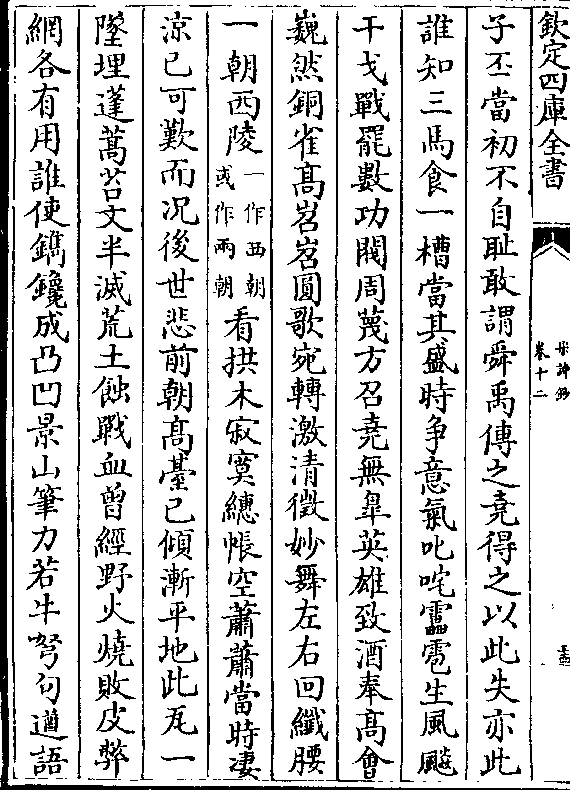 欽定四庫全書
宋詩鈔
卷十二
子丕當初不自恥敢謂舜禹傳之堯得之以此失亦此
誰知三馬食一槽當其盛時爭意氣叱咤靁雹生風飈
干戈戰罷數功閥周蔑方召堯無臯英雄致酒奉高會
巍然銅雀高岧岧圓歌宛轉激清徵妙舞左右回纖腰
一朝西陵一作西朝或作兩朝看拱木寂寞繐帳空蕭蕭當時淒
涼已可歎而况後世悲前朝高臺已傾漸平地此瓦一
墜埋蓬蒿苔文半滅荒土蝕戰血曾經野火燒敗皮弊
網各有用誰使鐫鑱成凸凹景山筆力若牛弩句遒語